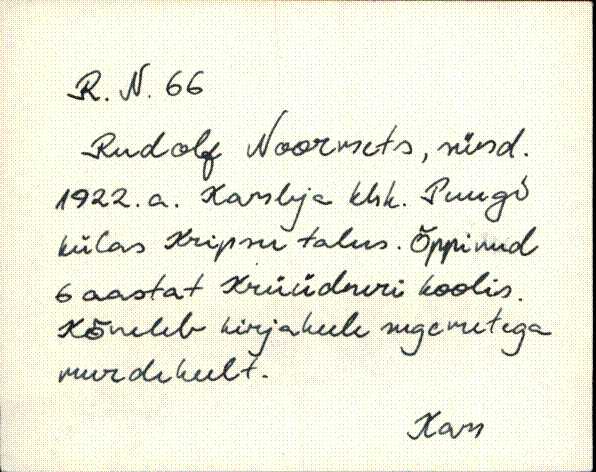 R. N. 66
Rudolf Noormets, sünd.
1922. a. Karulja khk. Puugi
külas Kripsu talus. Õppinud
6 aastat Krüüdneri koolis.
Kõneleb kirjakeele sugemetega
murdekeelt.
Kan